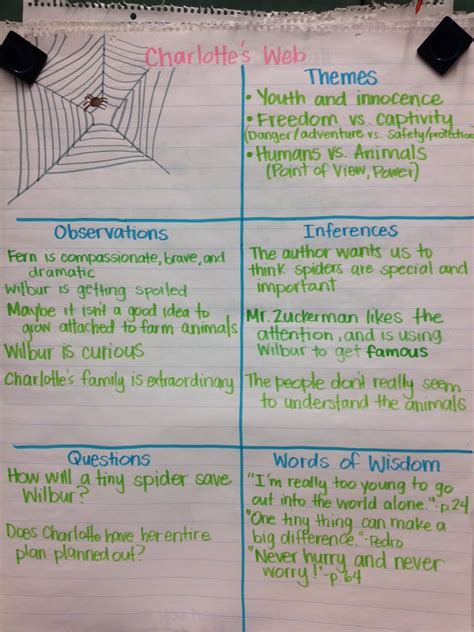 Charlotte's Web
Themes
• Youth and innocence
• Freedom vs. captivity
(Danger/adventure vs. Safety/protection)
• Humans vs. Animals
(Point of View, Power)
Observations
Fern is compassionate, brave, and
dramatic
Wilbur is getting spoiled
Maybe it isn't a good idea to
grow attached to farm animals
Wilbur is curious
Charlotte's family is extraordinary
Inferences
The author wants us to
think spiders are special and
important
Mr. Zuckerman likes the
attention, and is using
Wilbur to get famous
The people don't really seem
to understand the animals
Questions
How will a tiny spider save
Wilbur?
Does Charlotte have her entire
plan planned out?
Words of Wisdom
"I'm really too young to go
out into the world alone."-p.24
"One tiny thing can make a
big difference."-Pedro
"Never hurry and never
worry!"-p.64